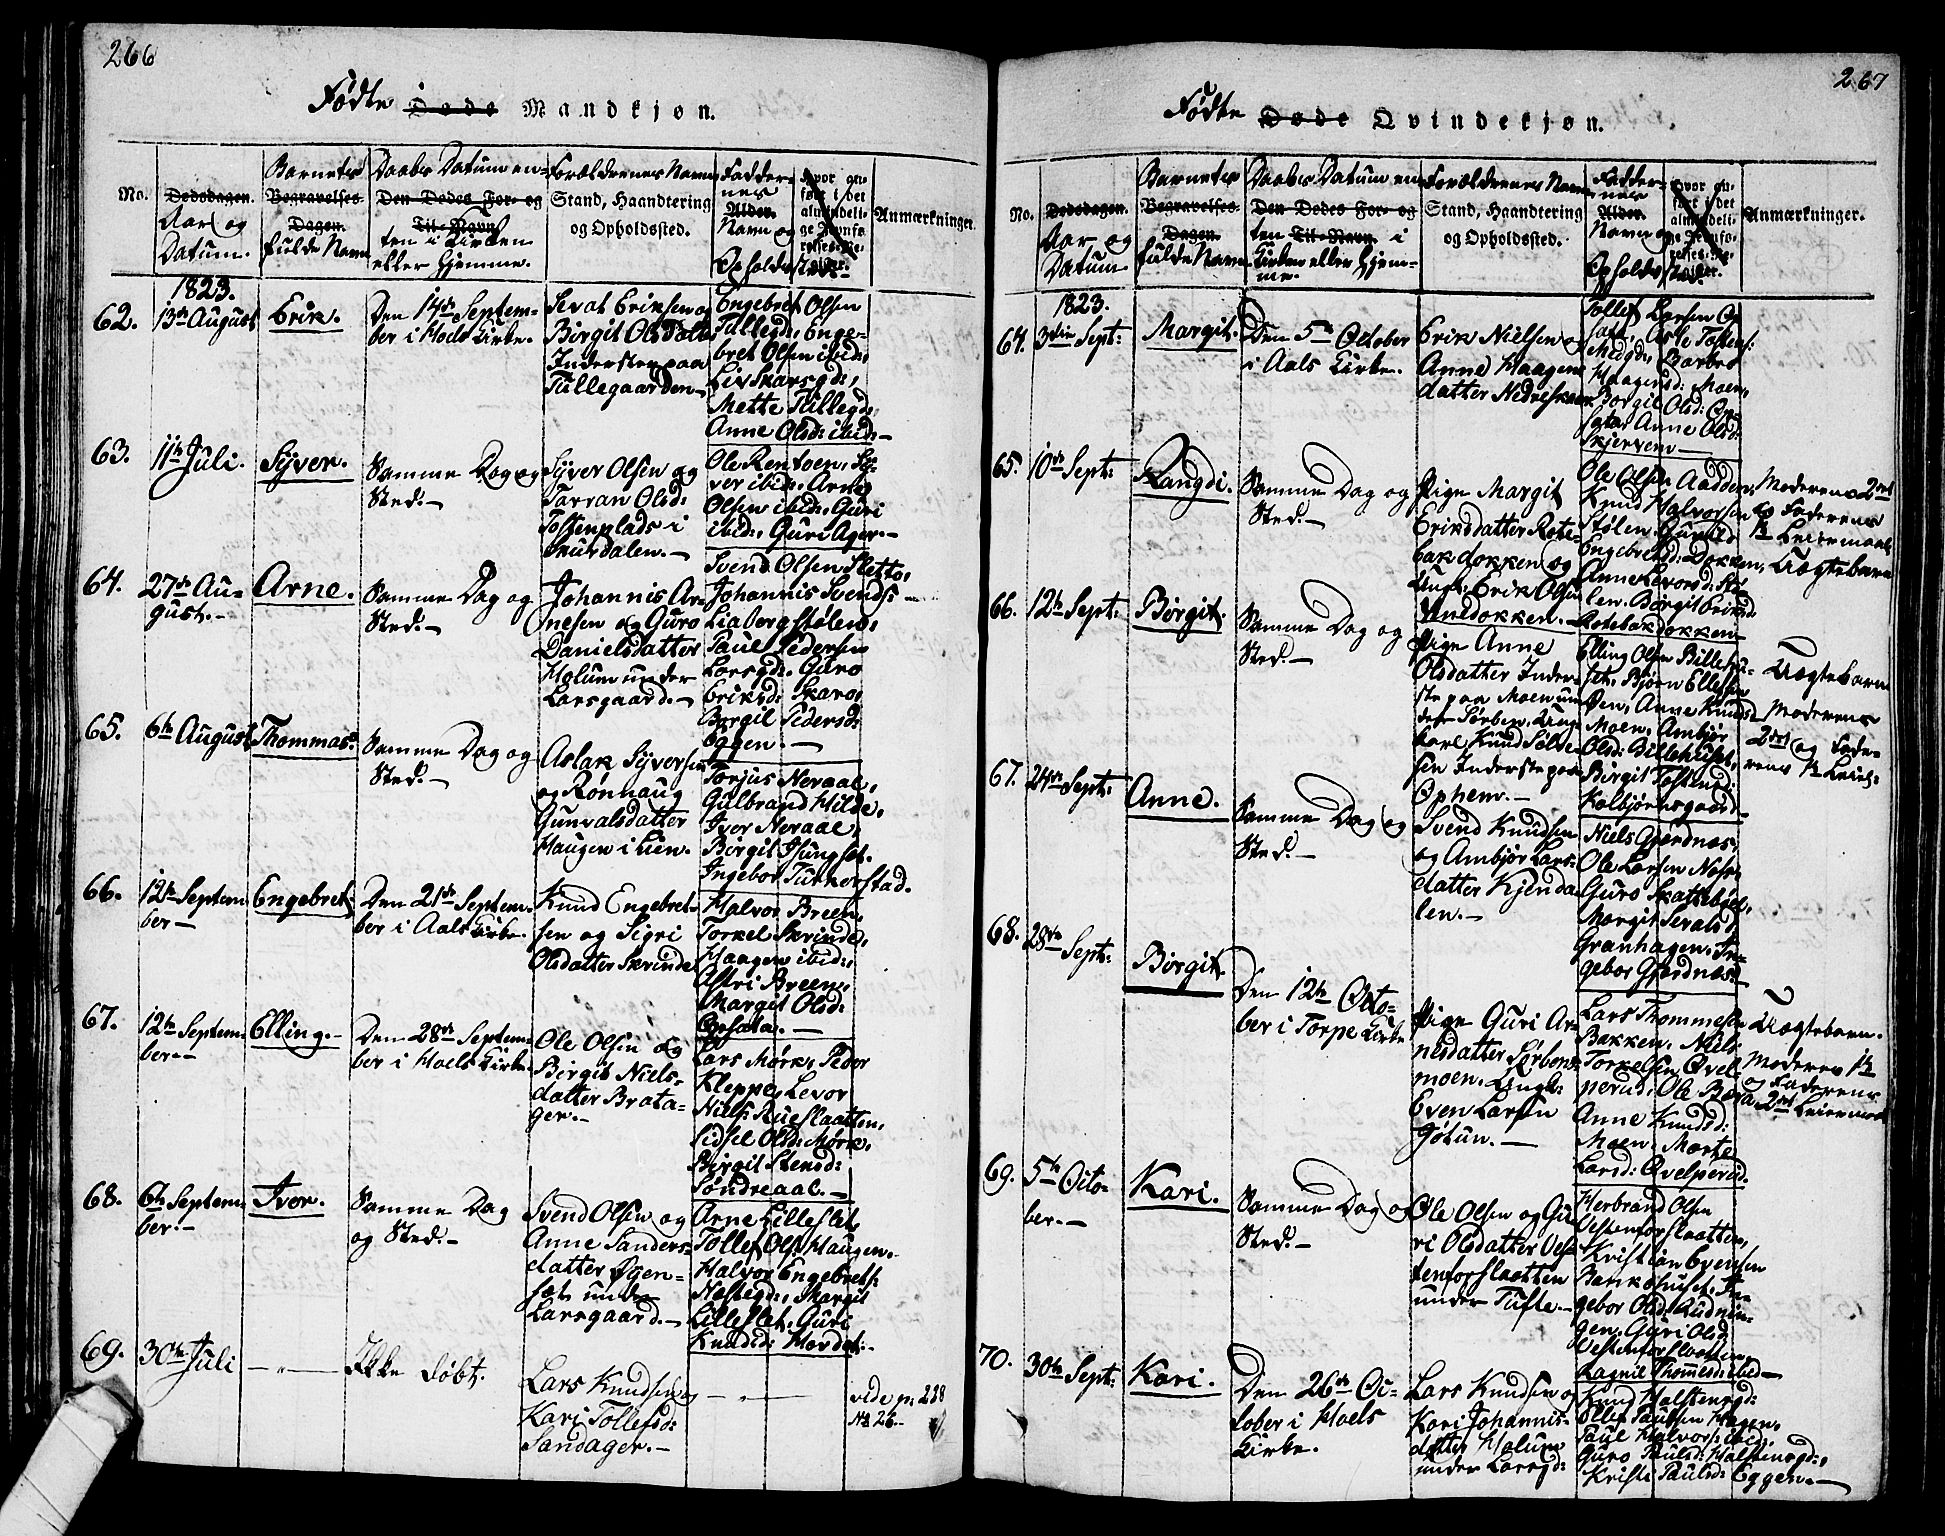 266
Fødte Døde Mandkjøn.
No.
Dødsdagen.
Aar og
Datum.
Barnets
Begravelses
Dagen.
fulde Navn
Daabs Datum en-
Den Dødes For- og
Til-Navn
ten i Kirken
eller Hjemme.
Forældrenes Navn
Stand, Haandtering
og Opholdssted.
Fadder-
nes
Alder.
Navn og
Opholdssted
Anmærkninger.
1823.
62.
13de August
Erik.
Den 14de Septem-
ber i Hoels Kirke.
Sevat Eriksen og
Birgit Olsdatter
Inderster paa
Tullegaarden
Engebret Olsen
Tullegd:, Enge-
bret Olsen ibid:,
Liv Skarsgd:,
Mette Tullegd:,
Anne Olsd: ibid:
63.
11te Juli.
Syver.
Samme Dag og
Sted.
Syver Olsen og
Jarran Olsd:
Skurdalen.
ver ibid:, Arne
Olsen ibid:, Guri
ibid:, Guri Ager.
64.
27de Au-
gust.
Arne.
Samme Dag og
Sted.
Johannis Ar-
nesen og Guro
Danielsdatter
Holum under
Larsgaard.
Svend Olsen Sletto,
Johannis Svends:
Liabergstølen,
Paul Pedersen
Larsgd:, Guro
Eriksd: Skaro,
Borgil Pedersd:
Eggen.
65.
6te August
Thommas.
Samme Dag og
Sted.
Aslak Syversen
og Rønnaug
Gunvalsdatter
Haugen i Lien.
Torjus Neraal,
Gulbrand Hilde,
Iver Neraal,
Birgit
Ingebor
66.
12te Septem-
ber
Engebret.
Den 21de Septem-
ber i Aals Kirke.
Knud Engebret-
sen og Sigri
Olsdatter Skrinde
Halvor Breen,
Torkel Skrinde,
Haagen ibid:,
Astri Breen,
Margit Olsd:
Opsata.
67.
12te Septem-
ber
Elling.
Den 28de Septem-
ber i Hoels Kirke.
Ole Olsen og
Birgit Niels-
datter Brata-
ger.
Lars Mørk, Peder
Kleppe, Levor
Niels: Rueslaatten,
Sidsel Olsd: Mørk,
Birgit Stensd:
Søndreaal.
68.
6te Septem-
ber.
Iver.
Samme Dag
og Sted.
Svend Olsen og
Anne Sanders-
datter Øgen-
set under
Larsgaard.
Arne Lilleslet,
Tollef Ols: Haugen.
Halvor Engebrets:
Nestegd:, Margit
Lilleslet, Guri
Knudsd:
69.
30te Juli
Ikke Døbt.
Lars Knudsen og
Kari Tollefsd:
Sandager.
vide p: 228
No 26.
267
Fødte Døde Qvindekjøn.
No.
Dødsdagen.
Aar og
Datum
Barnets
Begravelses
Dagen.
fulde Navn
Daabs Datum en
Den Dødes For- og
ten Til-Navn i
Kirken eller Hjem-
me.
Forældrenes Navn
Stand, Haandtering
og Opholdssted.
Fadder-
nes
Alder.
Navn og
Opholdssted.
Anmærkninger.
1823.
64.
3die Sept:
Margit.
Den 5te October
i Aals Kirke.
Erik Nielsen og
Anne Haagens
datter
Tollef Larsen Op
sata, Asle Tostens:
Medgd:, Barbro
Haagensd: Moen,
Borgil Olsd: Op-
sata, Anne Olsd:
Skjerven
65.
10de Sept:
Rangdi.
Samme Dag og
Sted.
Pige Margit
Eriksdatter Rote-
bakdokken og
Ungk: Erik Olsen
Ole Olsen
Knud Halvorsen
Stølen, Gunild
Engebretsd: Dokken,
Anne Levorsd: Stø-
len, Borgil Eriksd:
Rotebakdokken
Moderens 2det
og Faderens
1te Leiermaal
Uægtebarn
66.
12te Sept:
Borgit.
Samme Dag og
Sted.
Pige Anne
Olsdatter Inder-
ste paa Moen un-
der Sørben, Ung-
karl Knud
sen Inderste paa
Ophem.
Elling Olsen
Bjørn Ellefsen
Øen, Anne Knudsd:
Moen, Ambjør
Olsd: Billehuset,
Birgit Tostensd:
Kolbjørnsgaard
Uægtebarn
Moderens
2det og Fade-
rens 1te Leier:
67.
24de Sept:
Anne.
Samme Dag og
Sted.
Svend Knudsen
og Ambjør Lars-
datter Kjenda-
len.
Niels Gjerdnes,
Ole Larsen
Guro Skattebøl,
Margit
Granhagen, In-
gebor
68.
28de
Sept:
Borgit.
Den 12te Octo-
ber i Torpe Kirke
Pige Guri Ar-
nesdatter Sørben-
moen. Ungk:
Even Larsen
Gøtun.
Lars Thommesen
Bakken, Niels
Torkelsen Qvel-
perud, Ole
Anne Knudsd:
Moen, Marte
Larsd: Qvelperud.
Uægtebarn.
Moderens 1te
og Faderens
2det Leiermaal
69.
5te Octo-
ber.
Kari.
Samme Dag og
Sted.
Ole Olsen og Gu-
ri Olsdatter Ves-
tenforslaatten
under Tufte.
Herbrand Olsen
Vestenforslaatten,
Kristian Evensen
Bankehuset, In-
gebor Olsd: Rudnin-
gen, Guri Olsd:
Vestenforslaatten,
Ragnil Thommesd: ibid
70.
30te Sept:
Kari.
Den 26de Oc-
tober i Hoels
Kirke.
Lars Knudsen og
Kari Johannis-
datter Holum
under Larsgd:
Knud Halstensgd:
Ellef Paulsen Hagen,
Paul Halvors: ibid,
Guro Paulsd: Halstensgd:,
Kristi Paulsd: Eggen.